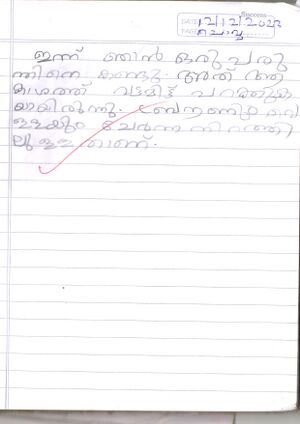 Success
DATE: 12/12/2023
PAGE: ചൊവ്വ
ഇന്ന് ഞാൻ ഒരു പരു
ന്തിനെ കണ്ടു. അത് ആ
കാശത്ത് വട്ടമിട്ട് പറക്കുക
യായിരുന്നു. ബ്രൗണും വെ
ള്ളയും ചേർന്ന നിറത്തി
ലുള്ളതാണ്.